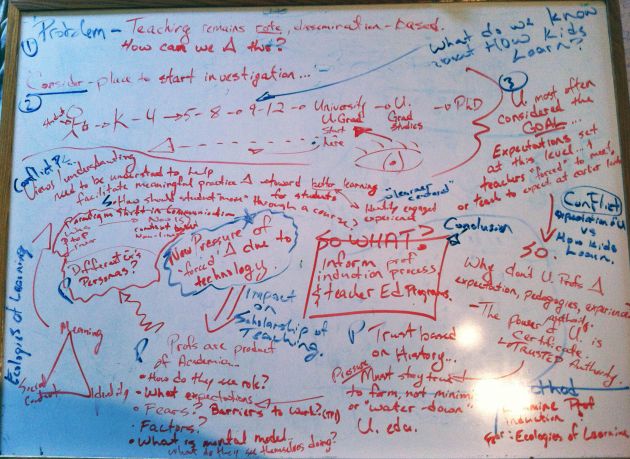 ① Problem - Teaching remains rote, dissemination-based.
How can we Δ this?
What do we know
about HOW Kids
Learn?
Consider - place to start investigation...
②
K - 4 → 5 - 8 → 9-12 → University → U. → PhD
U Grad
Grad
studies
start
here
③
U. most often
considered the
GOAL...
Expectations set
at this level...↑
teachers "forced" to meet
or teach to expect at earlier
Conflict
Views / understanding
need to be understood to help
facilitate meaningful practice Δ toward better learning
to students
"learner
centered"
How should student move through a course?
Identity engaged
experience
Paradigm Shift in Communication
was
Now is
Prof
content
driven
Non-linear
Different
Personas?
New Pressure of
"forced" Δ due to
technology.
SO WHAT?
Inform prof
induction process
& teacher Ed Programs.
Conclusion
Conflict
expectation of U
vs
How Kids
Learn.
SO
Why don't U. Profs Δ
expectation, pedagogies, experience?
- The Power of U. is
authority.
Certificate.
Trusted Authority
Impact
on
Scholarship of
Teaching.
Ecologies of Learning
Meaning
Social
Context
Identity
Profs are product
of Academia...
• How do they see role?
• What expectations
• Fears? Barriers to work?
• Factors?
• What is mental model...
what do they see themselves doing?
Trust based
on History...
Pressure
Must stay true
to form, not minimi
or "water-down"
U. edu.
Method
Examine Prof
Induction
for: Ecologies of Learning